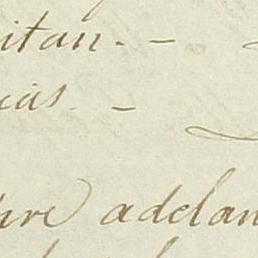 itan. -
cias. -
pre adelan